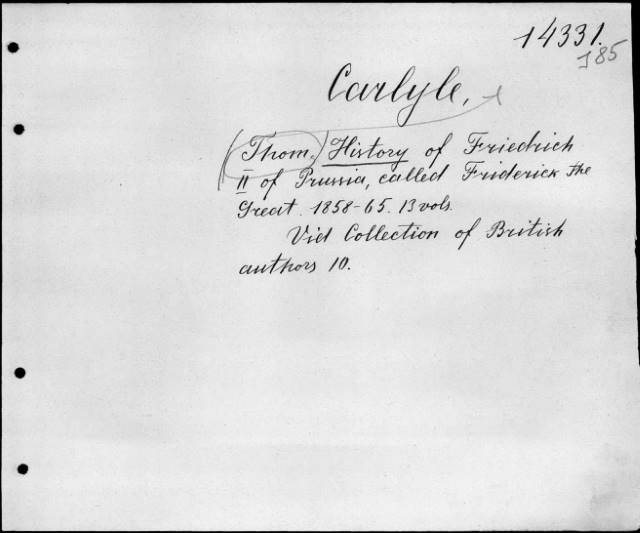 14331.
J85
Carlyle,
(Thom.) History of Friedrich
II of Prussia, called Friderick the
Great. 1858-65. 13 vols.
Vid Collection of British
authors 10.